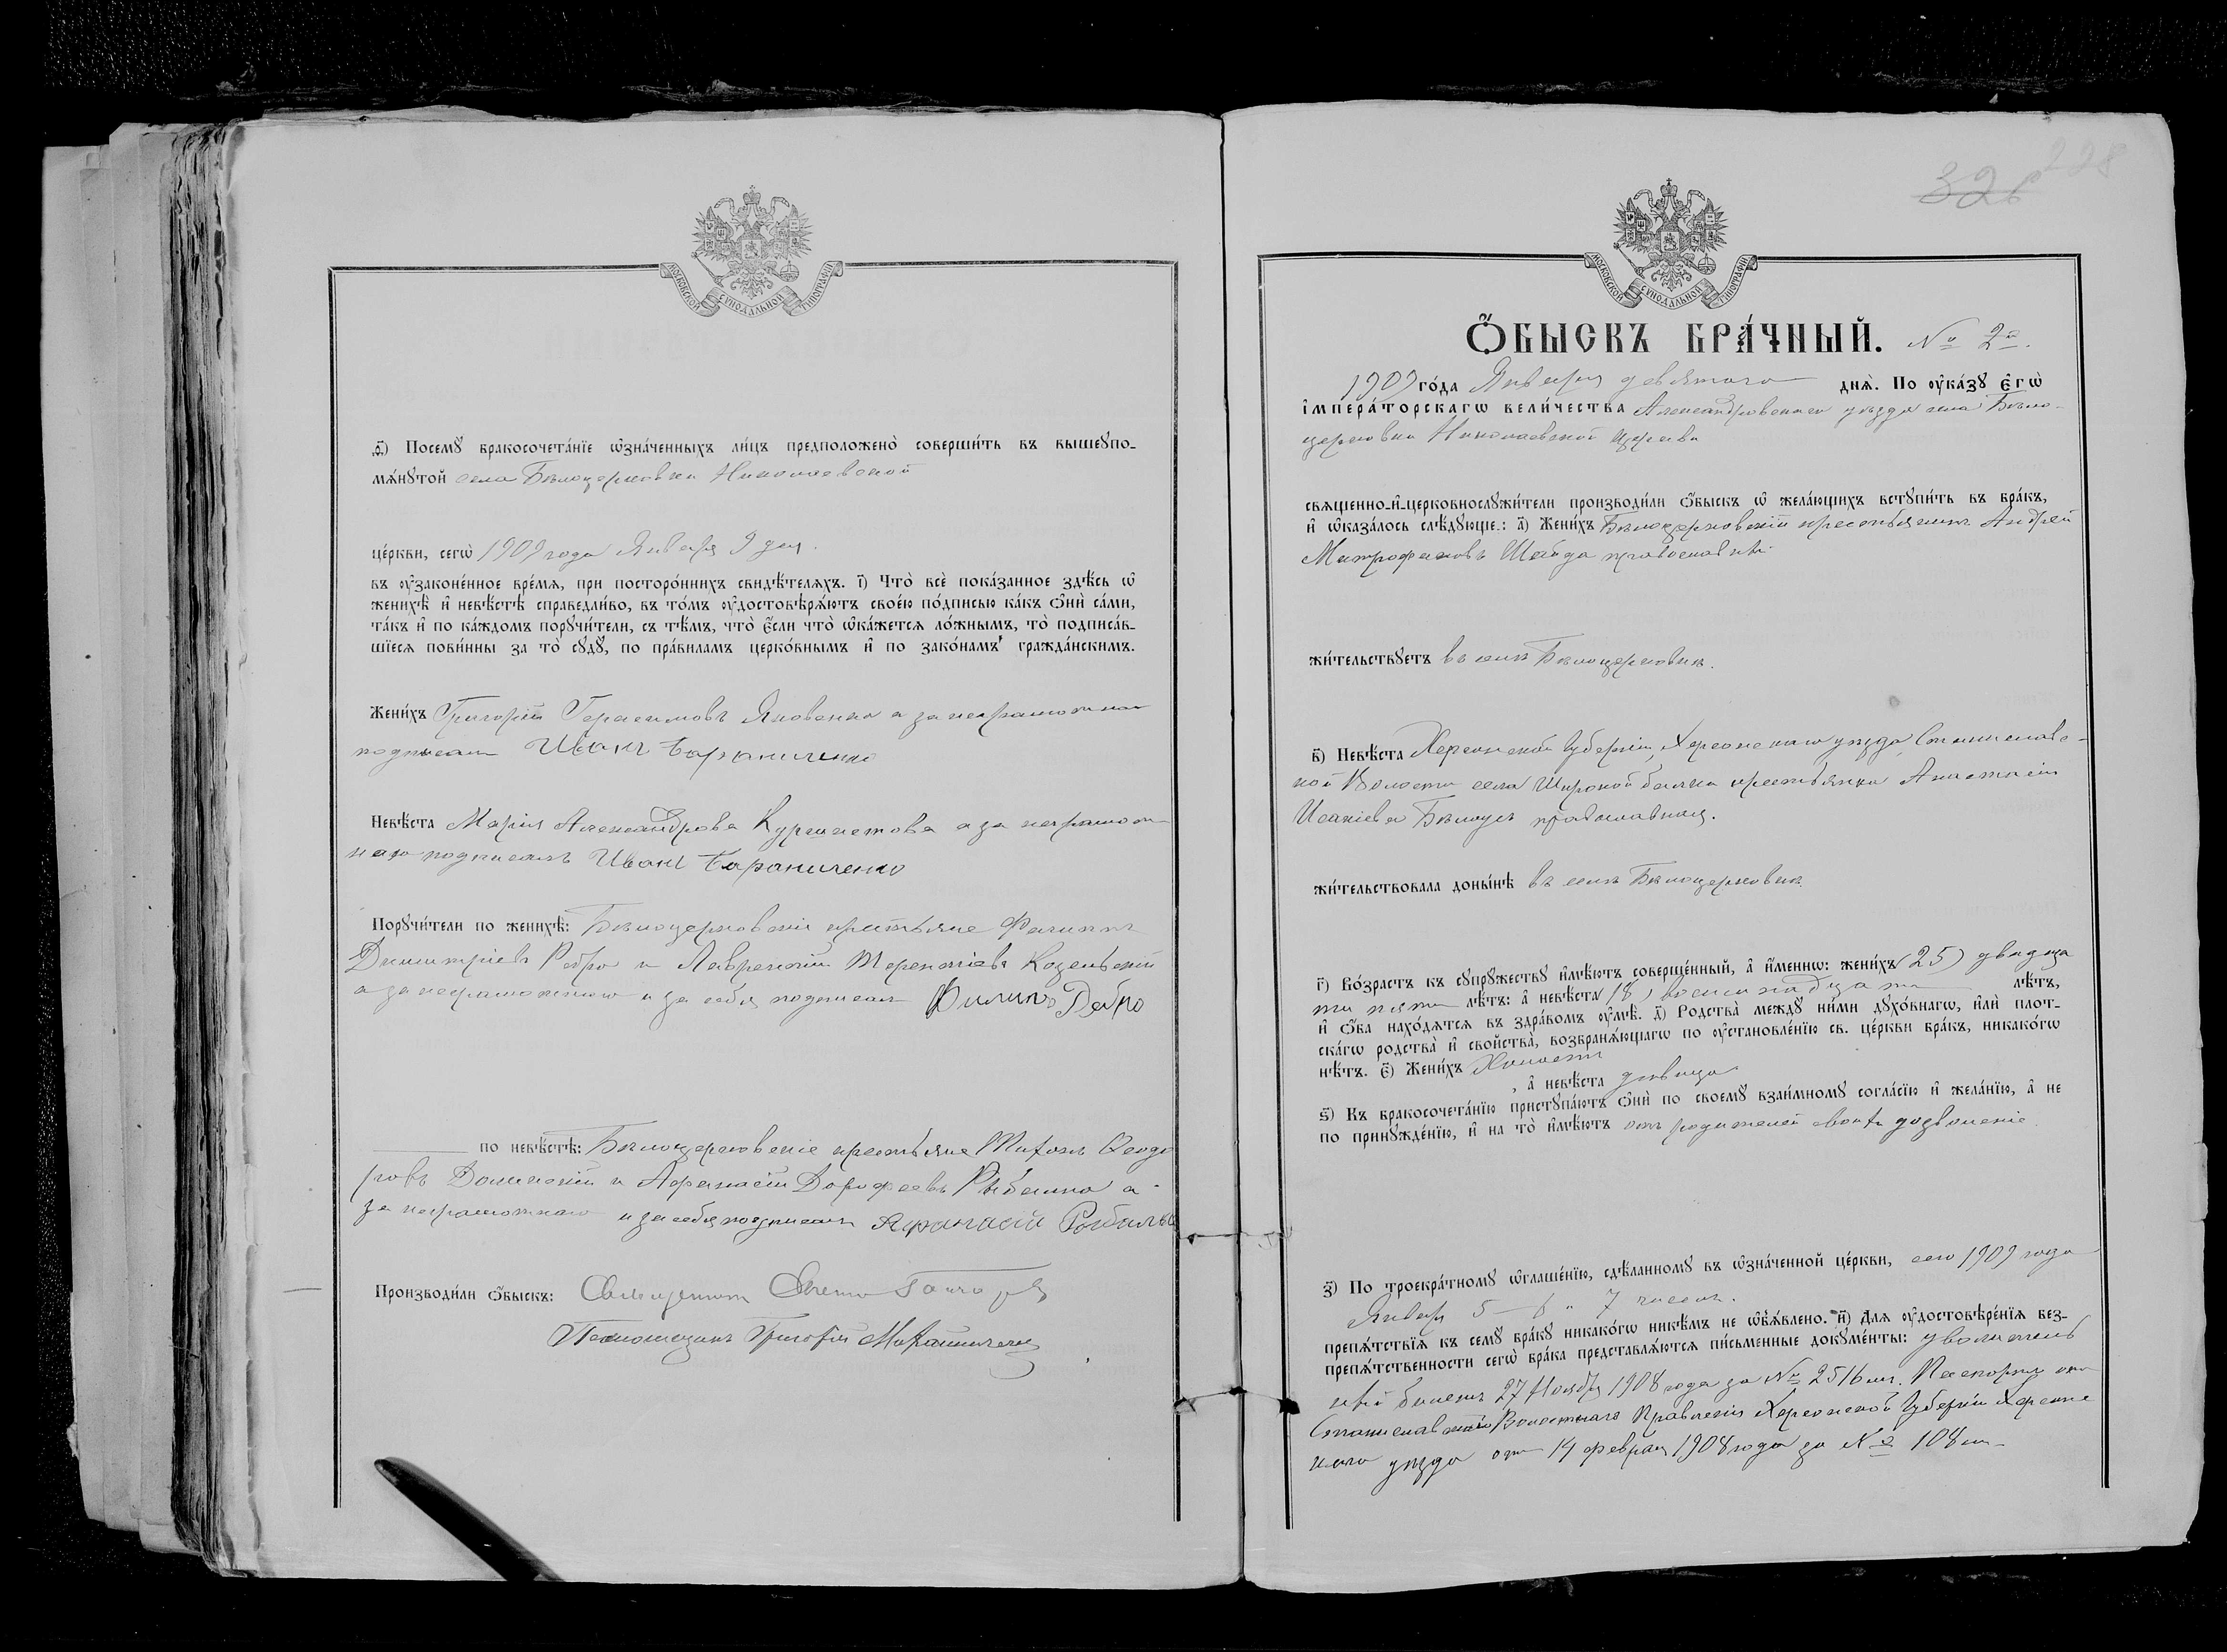 МОСКОВСКОЙ СѴНОДАЛЬНОЙ ТИПОГРАФІИ
ѳ҃) Посемꙋ бракосочета́нїе ѡзна́ченныхъ ли́цъ предположено̀ соверши́ть въ вышеꙋпо-
мѧ́нꙋтой села Бѣлоцерковки Николаевской
це́ркви, сегѡ̀ 1909 года Января 9 дня.
въ ᲂу҆зако́ненное вре́мѧ, при посторо́ннихъ свидѣ́телѧхъ. і҃) Что̀ всѐ пока́занное здѣ́сь ѡ҆
женихѣ̀ и҆ невѣ́стѣ справедли́во, въ то́мъ ᲂу҆достовѣрѧ́ютъ свое́ю по́дписью ка́къ ѻ҆нѝ са́ми,
та́къ и҆ по ка́ждомъ порꙋчи́тели, съ тѣ́мъ, что̀ є҆́сли что̀ ѡ҆ка́жетсѧ ло́жнымъ, то̀ подписа́в-
шїесѧ пови́нны за то̀ сꙋдꙋ̀, по пра́виламъ церко́внымъ и҆ по зако́намъ гражда́нскимъ.
Жени́хъ Григорій Герасимовъ Яковенко а за неграмотнаго
подписалъ Иванъ Бараниченко
Невѣ́ста Марія Александрова а за неграмот-
ную подписалъ Иванъ Бараниченко
Порꙋчи́тели по женихѣ̀: Бѣлоцерковскіе крестьяне Филиппъ
Димитріевъ и Лаврентій Терентіевъ
а за неграмотнаго и за себя подписалъ Филипъ
по невѣ́стѣ: Бѣлоцерковскіе крестьяне Тихонъ Ѳеодо
ровъ и Афанасій Дорофеевъ Рыбалко а
за неграмотнаго и за себя подписалъ Афанасій Рыбалко
Производи́ли ѻ҆́быскъ: Священникъ
Псаломщикъ Григорій
328 228
МОСКОВСКОЙ СѴНОДАЛЬНОЙ ТИПОГРАФІИ
Ѻ҆́БЫСКЪ БРА́ЧНЫЙ. № 2й.
1909 го́да Января девятаго днѧ̀. По ᲂу҆ка́зꙋ є҆гѡ̀
і҆мпера́торскагѡ вели́чества Александровскаго уѣзда села Бѣло-
церковки Николаевской церкви
свѧщенно-и҆-церковнослꙋжи́тели производи́ли ѻ҆́быскъ ѡ҆ жела́ющихъ встꙋпи́ть въ бра́къ,
и҆ ѡ҆каза́лось слѣ́дꙋющее: а҃) Жени́хъ Бѣлоцерковскій крестьянинъ Андрей
Митрофановъ Шайда православный.
жи́тельствꙋетъ въ селѣ Бѣлоцерковкѣ.
в҃) Невѣ́ста Херсонской Губерніи, Херсонскаго уѣзда, Станиславс-
кой Волости села Широкой балки крестьянка Анастасія
Исакіева Бѣлоусъ православная.
жи́тельствовала доны́нѣ въ селѣ Бѣлоцерковкѣ
г҃) Во́зрастъ къ сꙋпрꙋ́жествꙋ и҆мѣ́ютъ соверше́нный, а҆ и҆́менно: жени́хъ (25) двадца
ти пяти лѣ́тъ: а҆ невѣ́ста (18) восемнадцати лѣ́тъ,
и҆ ѻ҆́ба нахо́дѧтсѧ въ здра́вомъ ᲂу҆мѣ̀. д҃) Родства̀ междꙋ̀ ни́ми дꙋхо́внагѡ, и҆лѝ плот-
ска́гѡ родства̀ и҆ сво́йства̀, возбранѧ́ющагѡ по ᲂу҆становле́нїю св. це́ркви бра́къ, никако́гѡ
нѣ́тъ. є҃) Жени́хъ Холостъ
, а҆ невѣ́ста дѣвица
ѕ҃) Къ бракосочета́нїю пристꙋпа́ютъ ѻ҆нѝ по своемꙋ̀ взаи́мномꙋ согла́сїю и҆ жела́нїю, а҆ не
по принꙋжде́нїю, и҆ на то̀ и҆мѣ́ютъ отъ родителей своихъ дозволеніе.
з҃) По троекра́тномꙋ ѡ҆глаше́нїю, сдѣ́ланномꙋ въ ѡ҆зна́ченной це́ркви, сего 1909 года
Января 5 – 6 „ 7 чиселъ.
препѧ́тствїѧ къ семꙋ̀ бра́кꙋ никако́гѡ никѣ́мъ не ѡ҆б̾ѧ́влено. и҃) Длѧ ᲂу҆достовѣре́нїѧ без-
препѧ́тственности сегѡ̀ бра́ка представлѧ́ютсѧ пи́сьменные докꙋме́нты: увольнитель
ный билетъ 27 Ноября 1908 года за № 2516 м. Паспортъ отъ
Станиславскаго Волостнаго Правленія Херсонской Губерніи Херсонс
каго уѣзда отъ 14 февраля 1908 года за № 108 м.